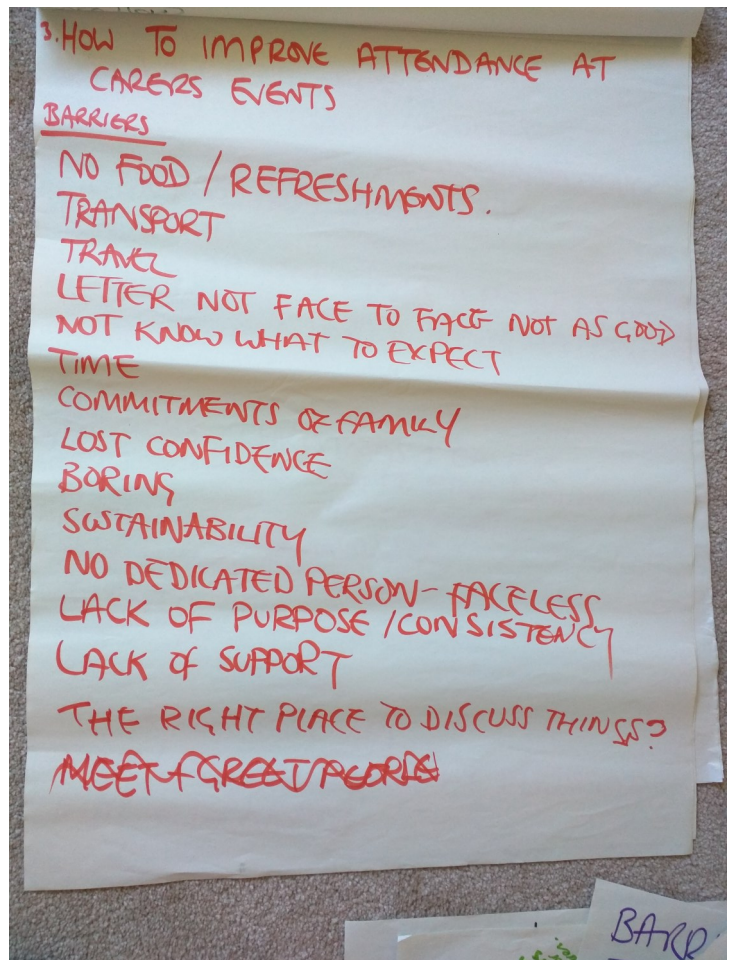 3. HOW TO IMPROVE ATTENDANCE AT
CARERS EVENTS
BARRIERS
NO FOOD / REFRESHMENTS.
TRANSPORT
TRAVEL
LETTER NOT FACE TO FACE NOT AS GOOD
NOT KNOW WHAT TO EXPECT
TIME
COMMITMENTS OF FAMILY
LOST CONFIDENCE
BORING
SUSTAINABILITY
NO DEDICATED PERSON - FACELESS
LACK OF PURPOSE / CONSISTENCY
LACK OF SUPPORT
THE RIGHT PLACE TO DISCUSS THINGS?
MEET + GREET PEOPLE
BARR